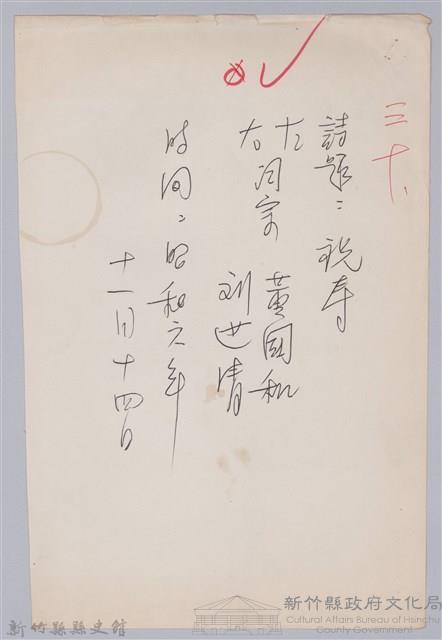 三十、
詩題：祝寿
左
右 词宗 黃國和
刘世清
时间：昭和六年
十一月十四日
新竹縣政府文化局
Cultural Affairs Bureau of Hsinchu
County Government
新竹縣縣史館